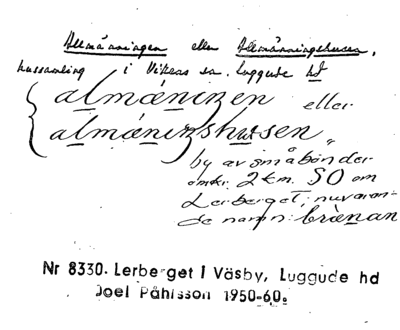 Allmänningen eller Allmänningshusen,
hussamling i Vikens sn. Luggude hd
almæniŋen eller
almæniŋshusen,
by av småbönder
omkr. 2 km. SO om
Lerberget; nuvaran-
de namn: brænan
Nr 8330. Lerberget i Väsby, Luggude hd
Joel Påhlsson 1950-60.